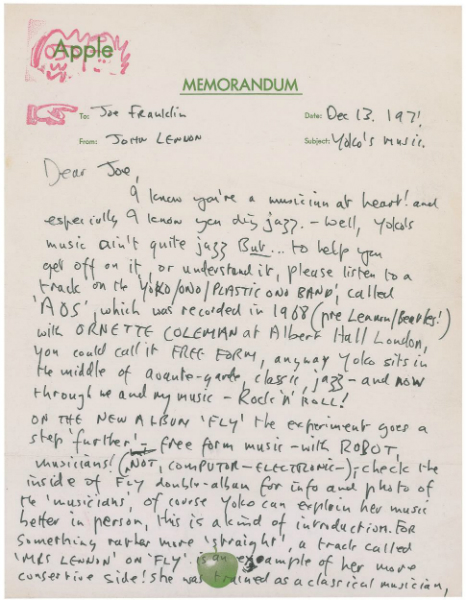 Apple
MEMORANDUM
To: Joe Franklin
Date: Dec 13. 1971
From: John Lennon
Subject: Yoko's music.
Dear Joe,
I know you're a musician at heart! and
especially I know you dig jazz. – Well, Yoko's
music ain't quite jazz But... to help you
get off on it, or understand it, please listen to a
track on the 'YOKO/ONO/PLASTIC ONO BAND', called
'AOS', which was recorded in 1968 (pre Lennon/Beatles!)
with ORNETTE COLEMAN at Albert Hall London,
you could call it FREE FORM, anyway Yoko sits in
the middle of avante-garde, classic, jazz – and now
through me and my music – Rock 'n' Roll!
ON THE NEW ALBUM 'FLY' the experiment goes a
step further' – free form music – with ROBOT,
musicians! (NOT, COMPUTOR – ELECTRONIC –); check the
inside of FLY double-album for info and photo of
the 'musicians', of course Yoko can explain her music
better in person, this is a kind of introduction. FOR
something rather more 'straight', a track called
'MRS LENNON' on 'FLY' is an example of her more
consertive side! She was trained as a classical musician,